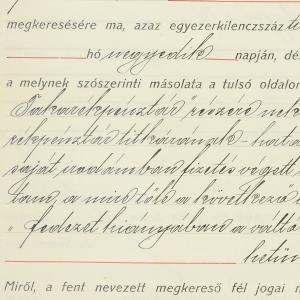 megkeresésére ma, azaz egyezerkilenczszáz
hó negyedik napján, dé
a melynek szószerinti másolata a tulsó oldalon
Takarékpénztár részére
rékpénztár titkárának - hat
saját irodámban fizetés végett
tam, a mire tőle a következő
„fedezet hiányában a váltó
Miről, a fent nevezett megkereső fél jogai